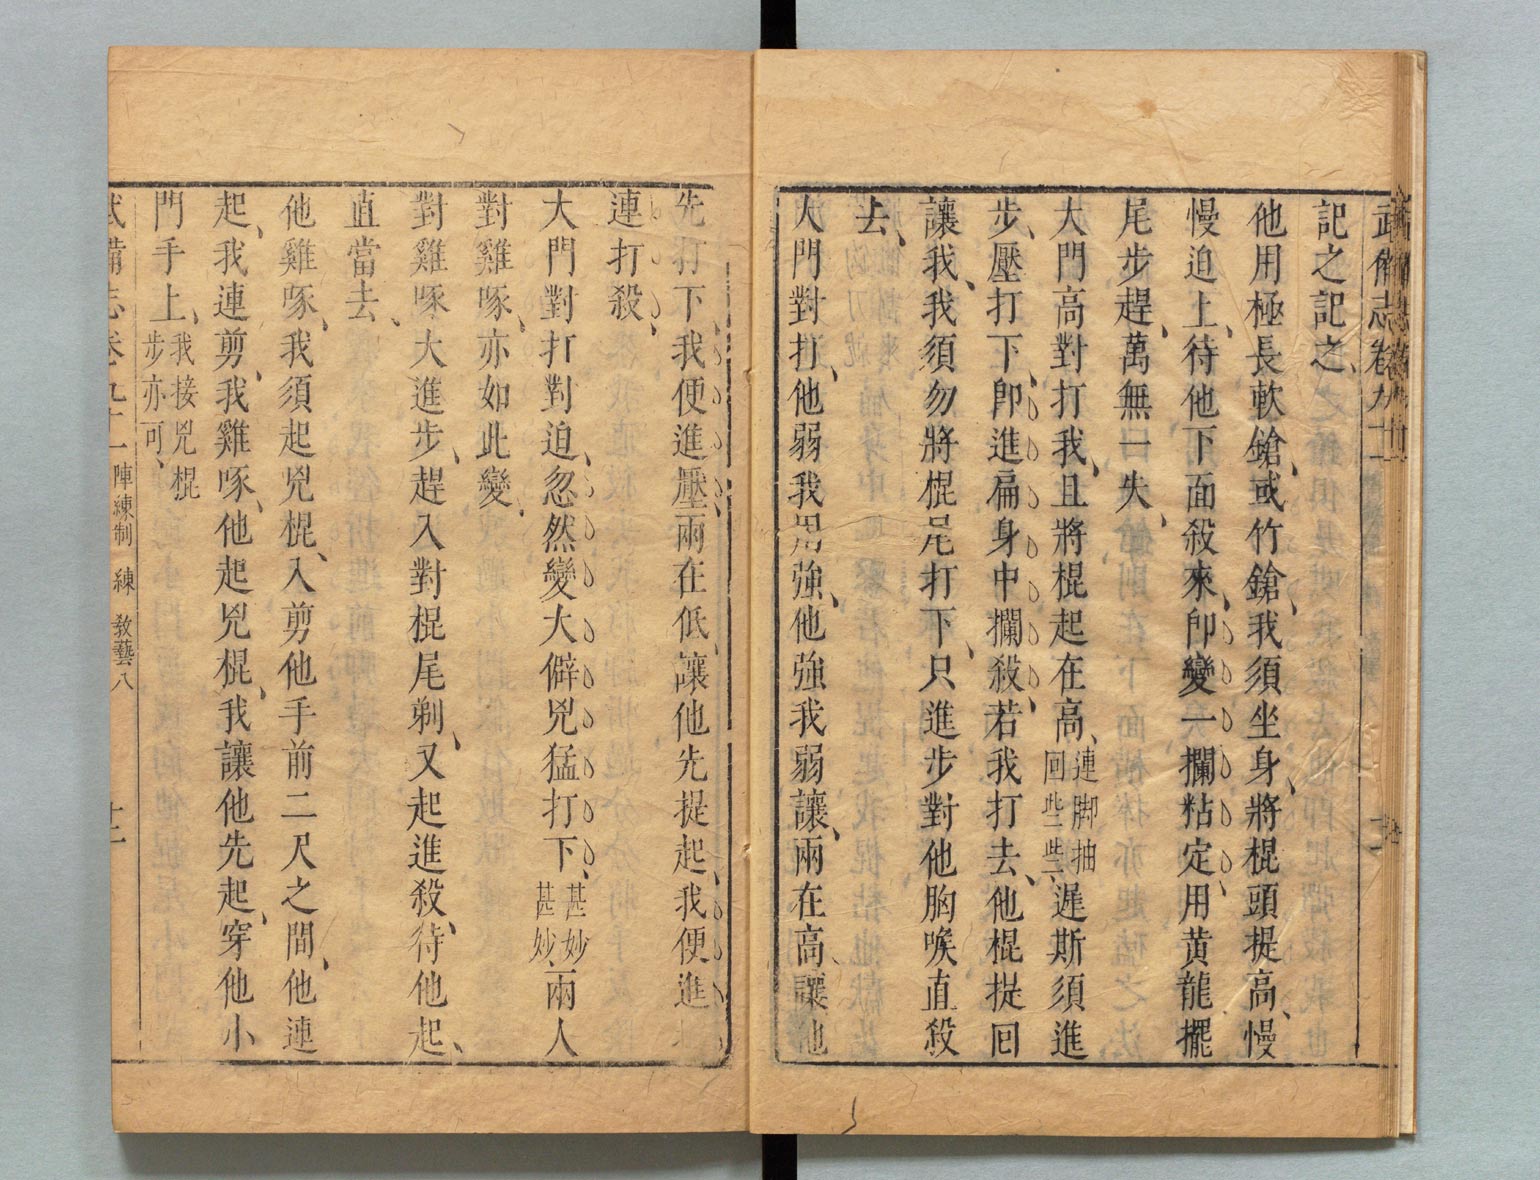 武備志卷九十一
記之記之
他用極長軟鎗或竹鎗我須坐身將棍頭提高慢
慢迫上待他下面殺來卽變一攔粘定用黄龍擺
尾步趕萬無一失
大門高對打我且將棍起在高連脚抽回些些遲斯須進
步壓打下卽進扁身中攔殺若我打去他棍提囘
讓我我須勿將棍尾打下只進步對他胸喉直殺
去
大門對打他弱我用強他強我弱讓兩在高讓他
先打下我便進壓兩在低讓他先提起我便進
連打殺
大門對打對迫忽然變大僻兇猛打下甚妙甚妙兩人
對雞啄亦如此變
對雞啄大進步趕入對棍尾剃又起進殺待他起
直當去
他雞啄我須起兇棍入剪他手前二尺之間他連
起我連剪我雞啄他起兇棍我讓他先起穿他小
門手上我接兇棍步亦可
武備志卷九十一 陣練制 練 教藝八 十二